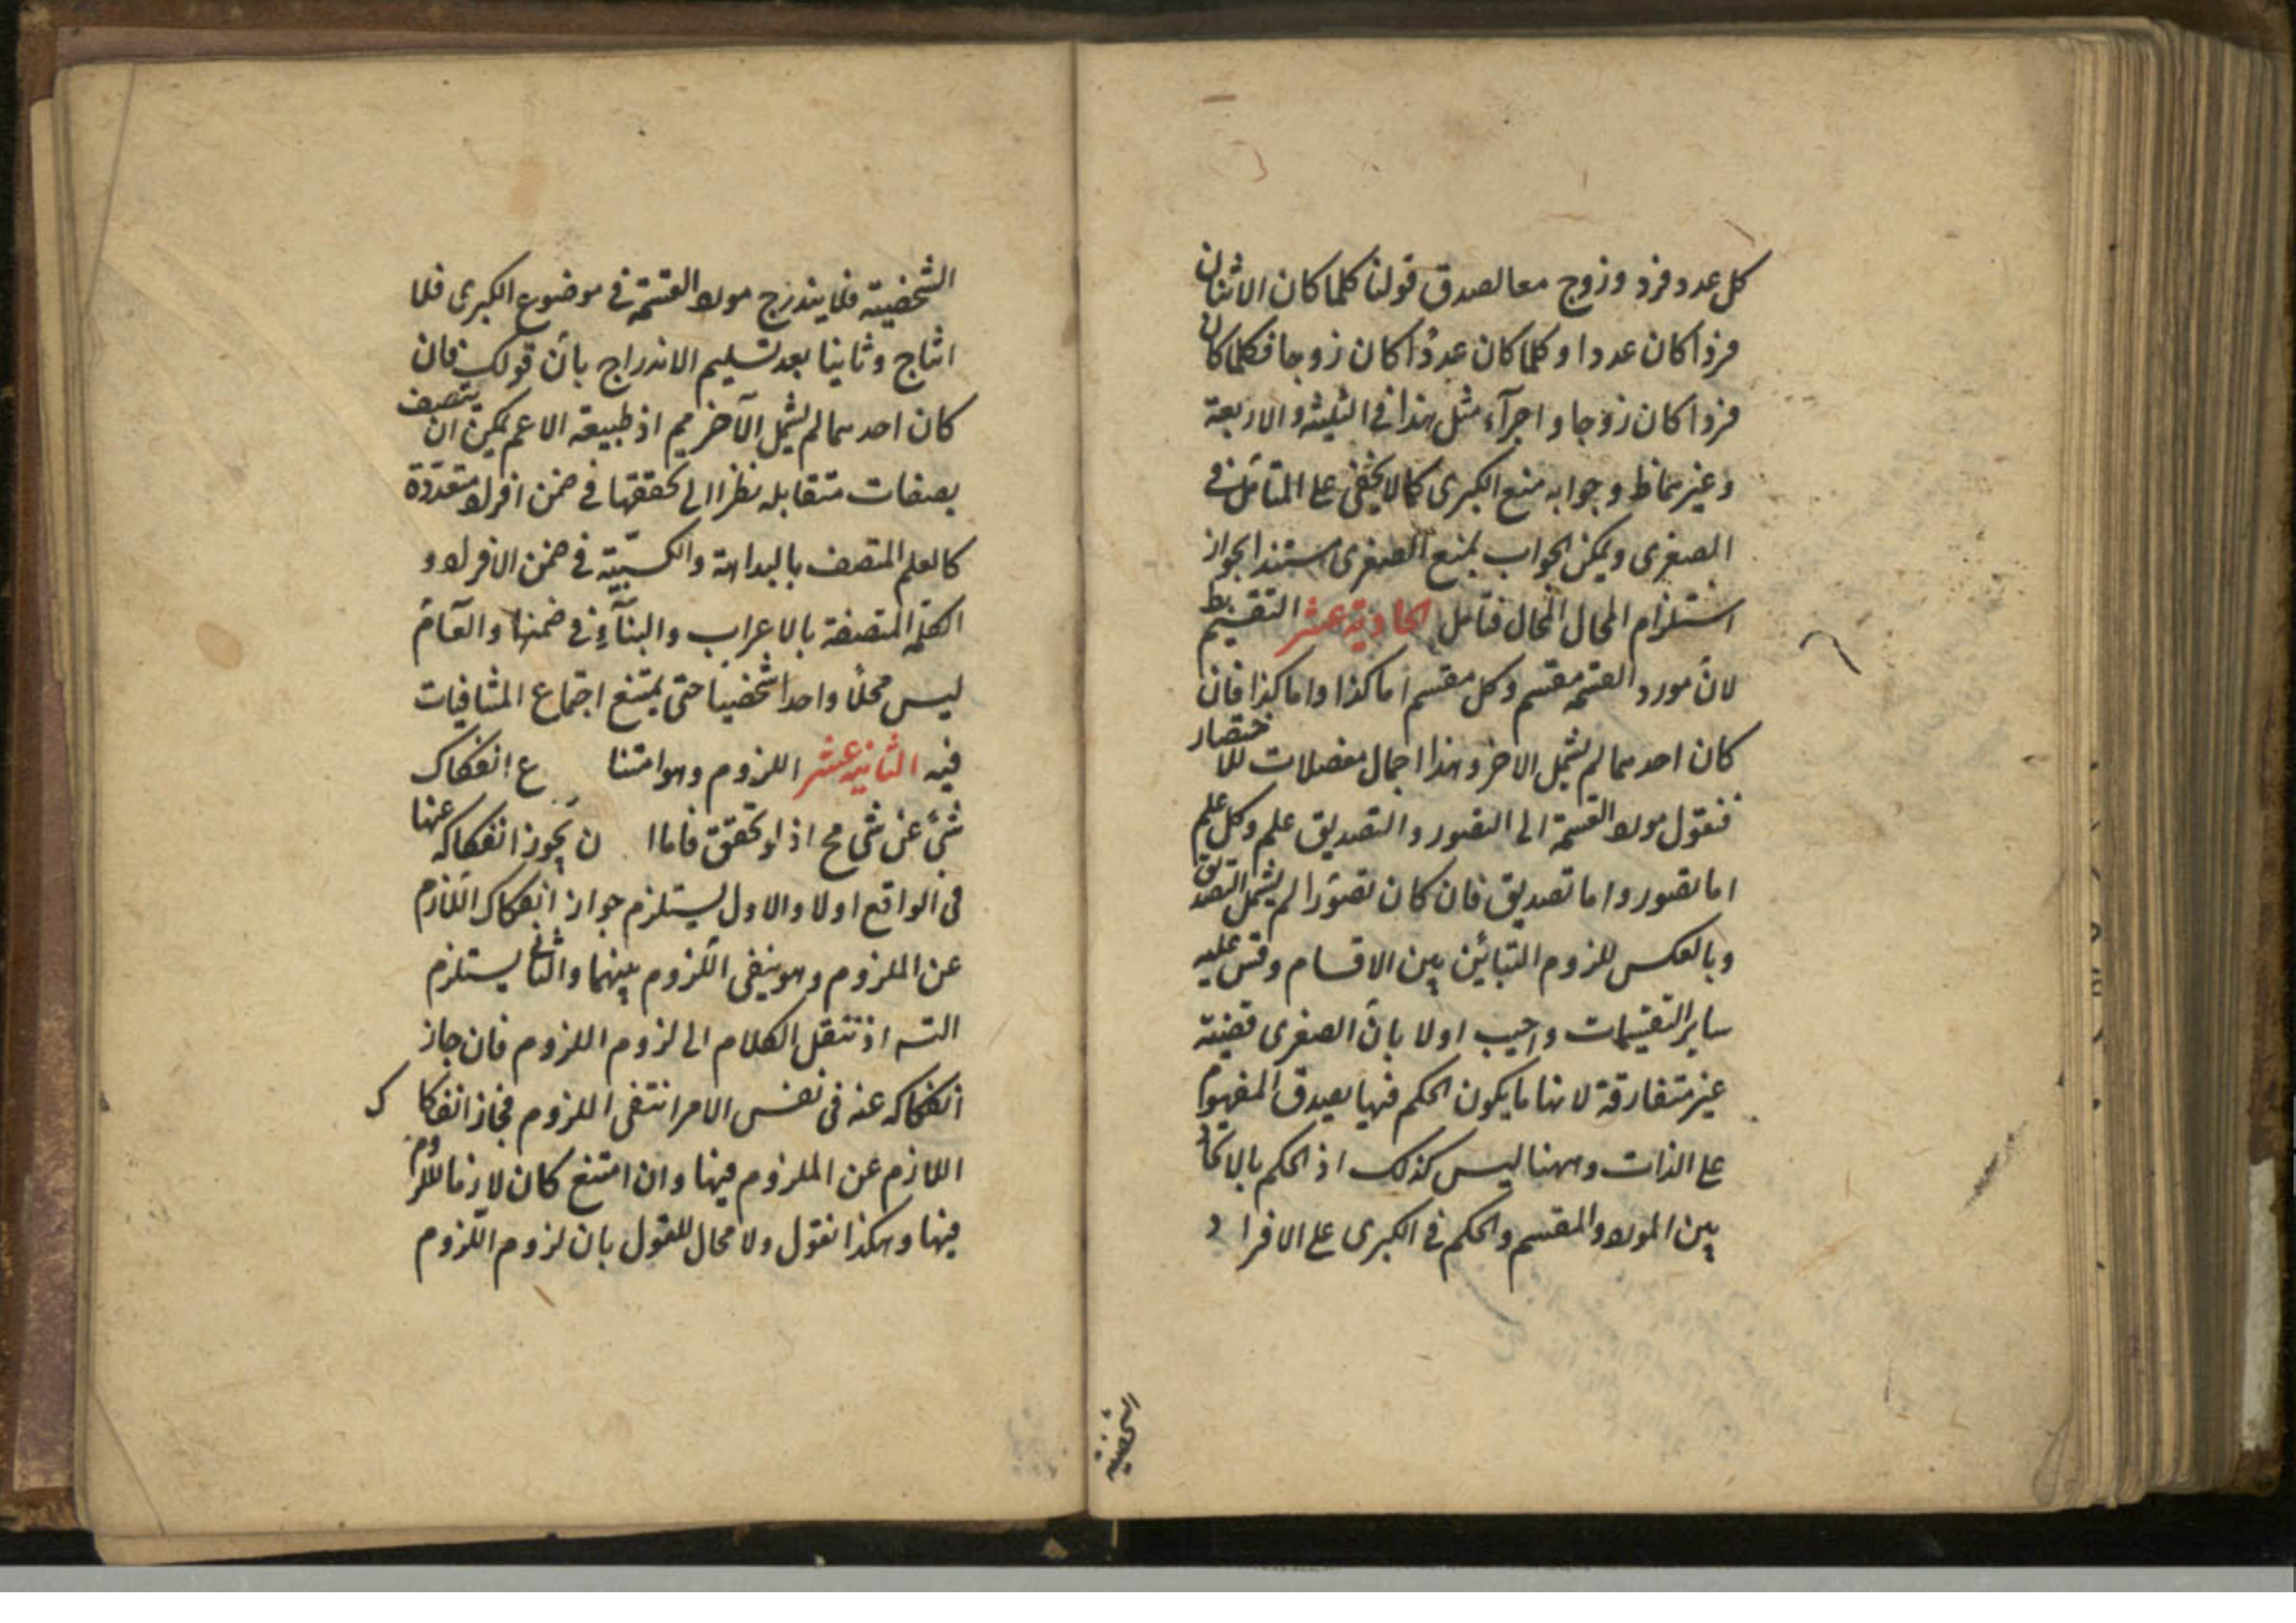 كل عدد فرد وزوج معا لصدق قولنا كلما كان الاثنان
فردا كان عددا وكلما كان عددا كان زوجا فكلما كان
فردا كان زوجا واجرآء مثل هذا فى الثلثة والاربعة
وغيرهما ظ وجوابه منع الكبرى كما لا يخفى على المتأمل فى
الصغرى ويمكن الجواب بمنع الصغرى مستندا بجواز
استلزام المحال المحال فتأمل الحادية عشر التقسيم بط
لان مورد القسمة مقسم وكل مقسم اما كذا واما كذا فان
كان احدهما لم يشمل الاخر وهذا اجمال مفصلات للاختصار
فنقول مورد القسمة الى التصور والتصديق علم وكل علم
اما تصور واما تصديق فان كان تصورا لم يشمل التصديق
وبالعكس للزوم التبائن بين الاقسام وقس عليه
ساير التقسيمات واجيب اولا بأن الصغرى قضية
غير متعارفة لانها ما يكون الحكم فيها بصدق المفهوم
على الذات وههنا ليس كذلك اذ الحكم بالاتحاد
بين المورد والمقسم والحكم فى الكبرى على الافراد
الشخصية
الشخصية فلا يندرج مورد القسمة فى موضوع الكبرى فلا
انتاج وثانيا بعد تسليم الاندراج بأن قولك فان
كان احدهما لم يشمل الآخر مم اذ طبيعة الاعم يمكن ان يتصف
بصفات متقابله نظرا الى تحققها فى ضمن افراد متعددة
كالعلم المتصف بالبداهة والكسبيّة فى ضمن الافراد و
الكلمة المتصفة بالاعراب والبنآء فى ضمنها والعام
ليس محلا واحدا شخصيا حتى يمتنع اجتماع المتنافيات
فيه الثانية عشر اللزوم وهو امتنا ع انفكاك
شئ عن شئ مح اذ لو تحقق فاما ا ن يجوز انفكاكه عنها
فى الواقع او لا والاول يستلزم جواز انفكاك اللازم
عن الملزوم وهو ينفى اللزوم بينهما والثانى يستلزم
التسـ اذ ننقل الكلام الى لزوم اللزوم فان جاز
انفكاكه عنه فى نفس الامر انتفى اللزوم فجاز انفكا ك
اللازم عن الملزوم فيها وان امتنع كان لازما للزوم
فيها وهكذا نقول ولا مجال للقول بان لزوم اللزوم